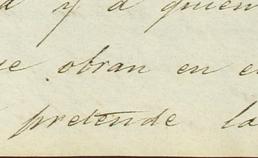 y a quien
obran en
pretende la